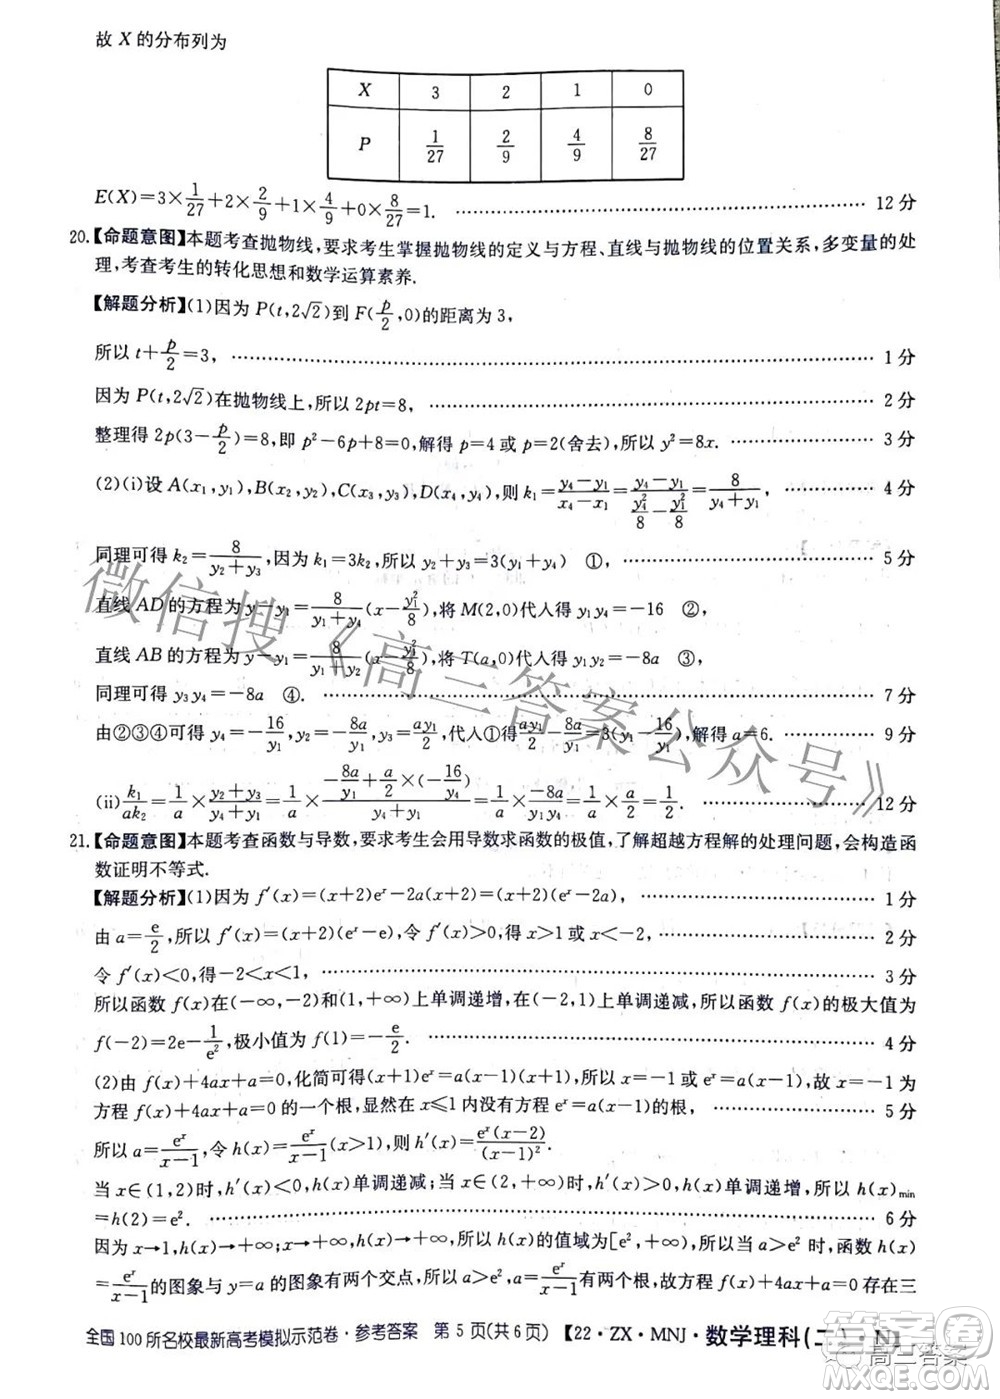 故 X 的分布列为
X 3 2 1 0
P 1/27 2/9 4/9 8/27
E(X)=3×1/27+2×2/9+1×4/9+0×8/27=1. …… 12 分
20.【命题意图】本题考查抛物线,要求考生掌握抛物线的定义与方程、直线与抛物线的位置关系,多变量的处
理,考查考生的转化思想和数学运算素养.
【解题分析】(1)因为 P(t,2√2)到 F(p/2,0)的距离为 3,
所以 t+p/2=3, …… 1 分
因为 P(t,2√2)在抛物线上,所以 2pt=8, …… 2 分
整理得 2p(3-p/2)=8,即 p²-6p+8=0,解得 p=4 或 p=2(舍去),所以 y²=8x. …… 3 分
(2)(i)设 A(x₁,y₁),B(x₂,y₂),C(x₃,y₃),D(x₄,y₄),则 k₁=(y₄-y₁)/(x₄-x₁)=(y₄-y₁)/(y₄²/8-y₁²/8)=8/(y₄+y₁), …… 4 分
同理可得 k₂=8/(y₂+y₃),因为 k₁=3k₂,所以 y₂+y₃=3(y₄+y₁) ①, …… 5 分
直线 AD 的方程为 y-y₁=8/(y₁+y₄)(x-y₁²/8),将 M(2,0)代人得 y₁y₄=-16 ②,
直线 AB 的方程为 y-y₁=8/(y₁+y₂)(x-y₁²/8),将 T(a,0)代入得 y₁y₂=-8a ③,
同理可得 y₃y₄=-8a ④. …… 7 分
由②③④可得 y₄=-16/y₁,y₂=-8a/y₁,y₃=ay₁/2,代人①得 ay₁/2-8a/y₁=3(y₁-16/y₁),解得 a=6. …… 9 分
(ii)k₁/ak₂=1/a×(y₂+y₃)/(y₄+y₁)=1/a×(-8a/y₁+a/2×(-16/y₄))/(y₁+y₄)=1/a×-8a/y₁y₄=1/a×a/2=1/2. …… 12 分
21.【命题意图】本题考查函数与导数,要求考生会用导数求函数的极值,了解超越方程解的处理问题,会构造函
数证明不等式.
【解题分析】(1)因为 f′(x)=(x+2)eˣ-2a(x+2)=(x+2)(eˣ-2a), …… 1 分
由 a=e/2,得 f′(x)=(x+2)(eˣ-e),令 f′(x)>0,得 x>1 或 x<-2, …… 2 分
令 f′(x)<0,得-2<x<1, …… 3 分
所以函数 f(x)在(-∞,-2)和(1,+∞)上单调递增,在(-2,1)上单调递减,所以函数 f(x)的极大值为
f(-2)=2e-1/e²,极小值为 f(1)=-e/2. …… 4 分
(2)由 f(x)+4ax+a=0,化简可得(x+1)eˣ=a(x²-1),所以(x+1)[eˣ-a(x-1)]=0,故 x=-1 为
方程 f(x)+4ax+a=0 的一个根,因此在 x≤1 内没有方程 f(x)的根, …… 5 分
所以 a=eˣ/(x-1),令 h(x)=eˣ/(x-1)(x>1),则 h′(x)=eˣ(x-2)/(x-1)².
当 x∈(1,2)时,h′(x)<0,h(x)单调递减;当 x∈(2,+∞)时,h′(x)>0,h(x)单调递增,所以 h(x)min
=h(2)=e². …… 6 分
因为 x→1,h(x)→+∞;x→+∞,h(x)→+∞;所以 h(x)的值域为[e²,+∞),所以当 a>e²时,函数 h(x)
=eˣ/(x-1)的图象与 y=a 的图象有两个交点,所以 a>e²时,方程 eˣ/(x-1)=a 有两个根,故方程 f(x)+4ax+a=0 存在三
全国100所名校最新高考模拟示范卷·参考答案 第 5 页(共 6 页) 【22·ZX·MNJ·数学理科(二)·N】
微信搜《高三答案公众号》
高三答案